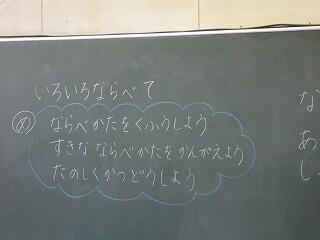 いろいろならべて
め ならべかたをくふうしよう
すきな ならべかたをかんがえよう
たのしくかつどうしよう
な
あ
し